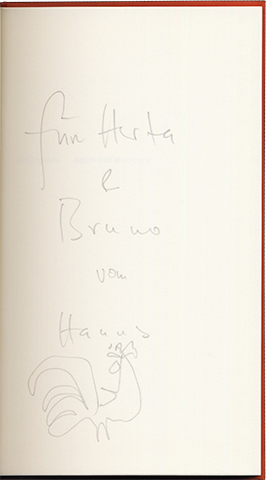 für Herta
&
Bruno
vom
Hannis